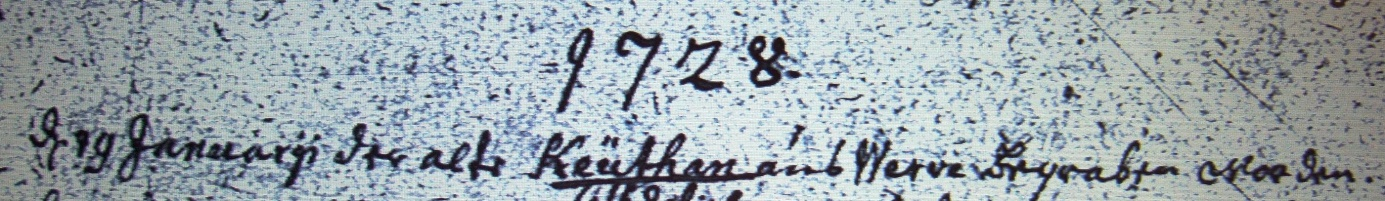 1728.
d 19 Januarij der alte Keüthan aus Werve Begraben worden.